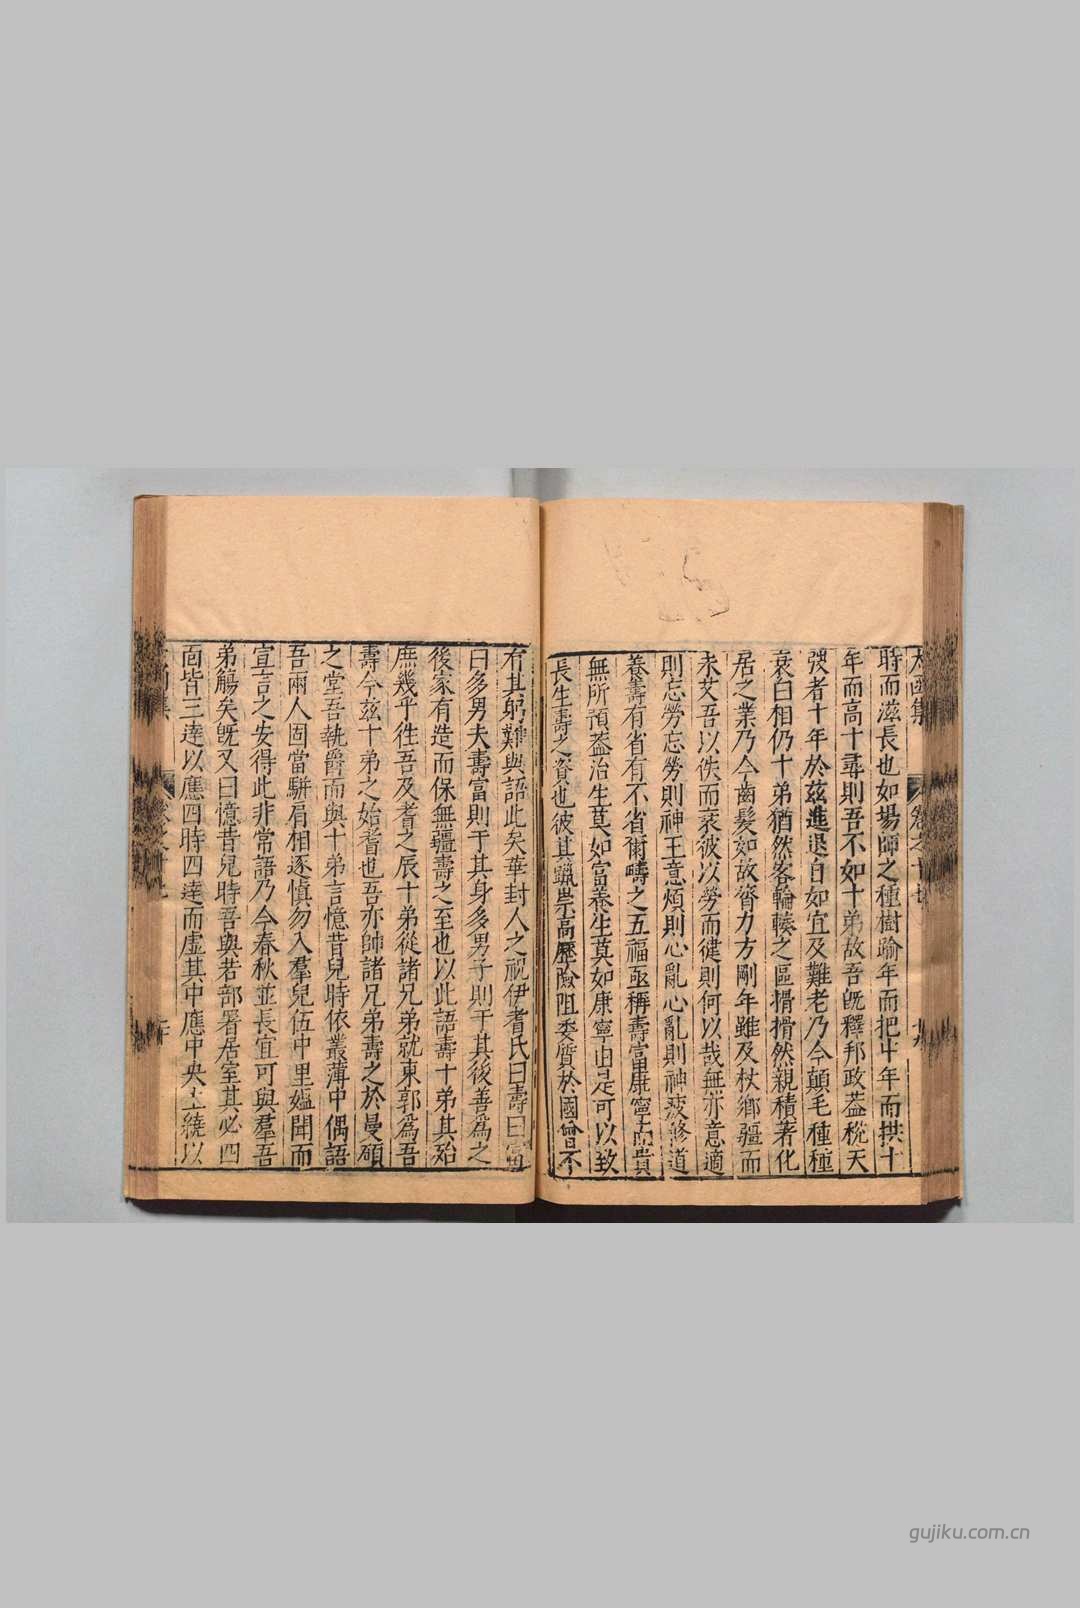 太函集 卷之十七 十九
時而滋長也如場師之種樹踰年而把廿年而拱十
年而高十尋則吾不如十弟故吾既釋邦政葢稅天
弢者十年於茲進退自如宜及難老乃今顛毛種種
衰白相仍十弟猶然客輪輳之區搰搰然親積著化
居之業乃今齒髮如故膂力方剛年雖及杖鄉疆而
未艾吾以佚而衰彼以勞而健則何以哉無亦意適
則忘勞忘勞則神王意煩則心亂心亂則神疲修道
養壽有省有不省爾疇之五福亟稱壽富康寧而貴
無所預葢治生莫如富養生莫如康寧由是可以致
長生壽之資也彼其躐崇高歷險阻委質於國曾不
有其躬難與語此矣華封人之祝伊耆氏曰壽曰富
曰多男夫壽富則于其身多男子則于其後善為之
後家有造而保無疆壽之至也以此語壽十弟其殆
庶幾乎往吾及耆之辰十弟從諸兄弟就東郭為吾
壽今茲十弟之始耆也吾亦帥諸兄弟壽之於曼碩
之堂吾執爵而與十弟言憶昔兒時依叢薄中偶語
吾兩人固當駢肩相逐慎勿入羣兒伍中里媼聞而
宣言之安得此非常語乃今春秋並長宜可與羣吾
弟觴矣既又曰憶昔兒時吾與若部署居室其必四
面皆三達以應四時四達而虛其中應中央土繞以